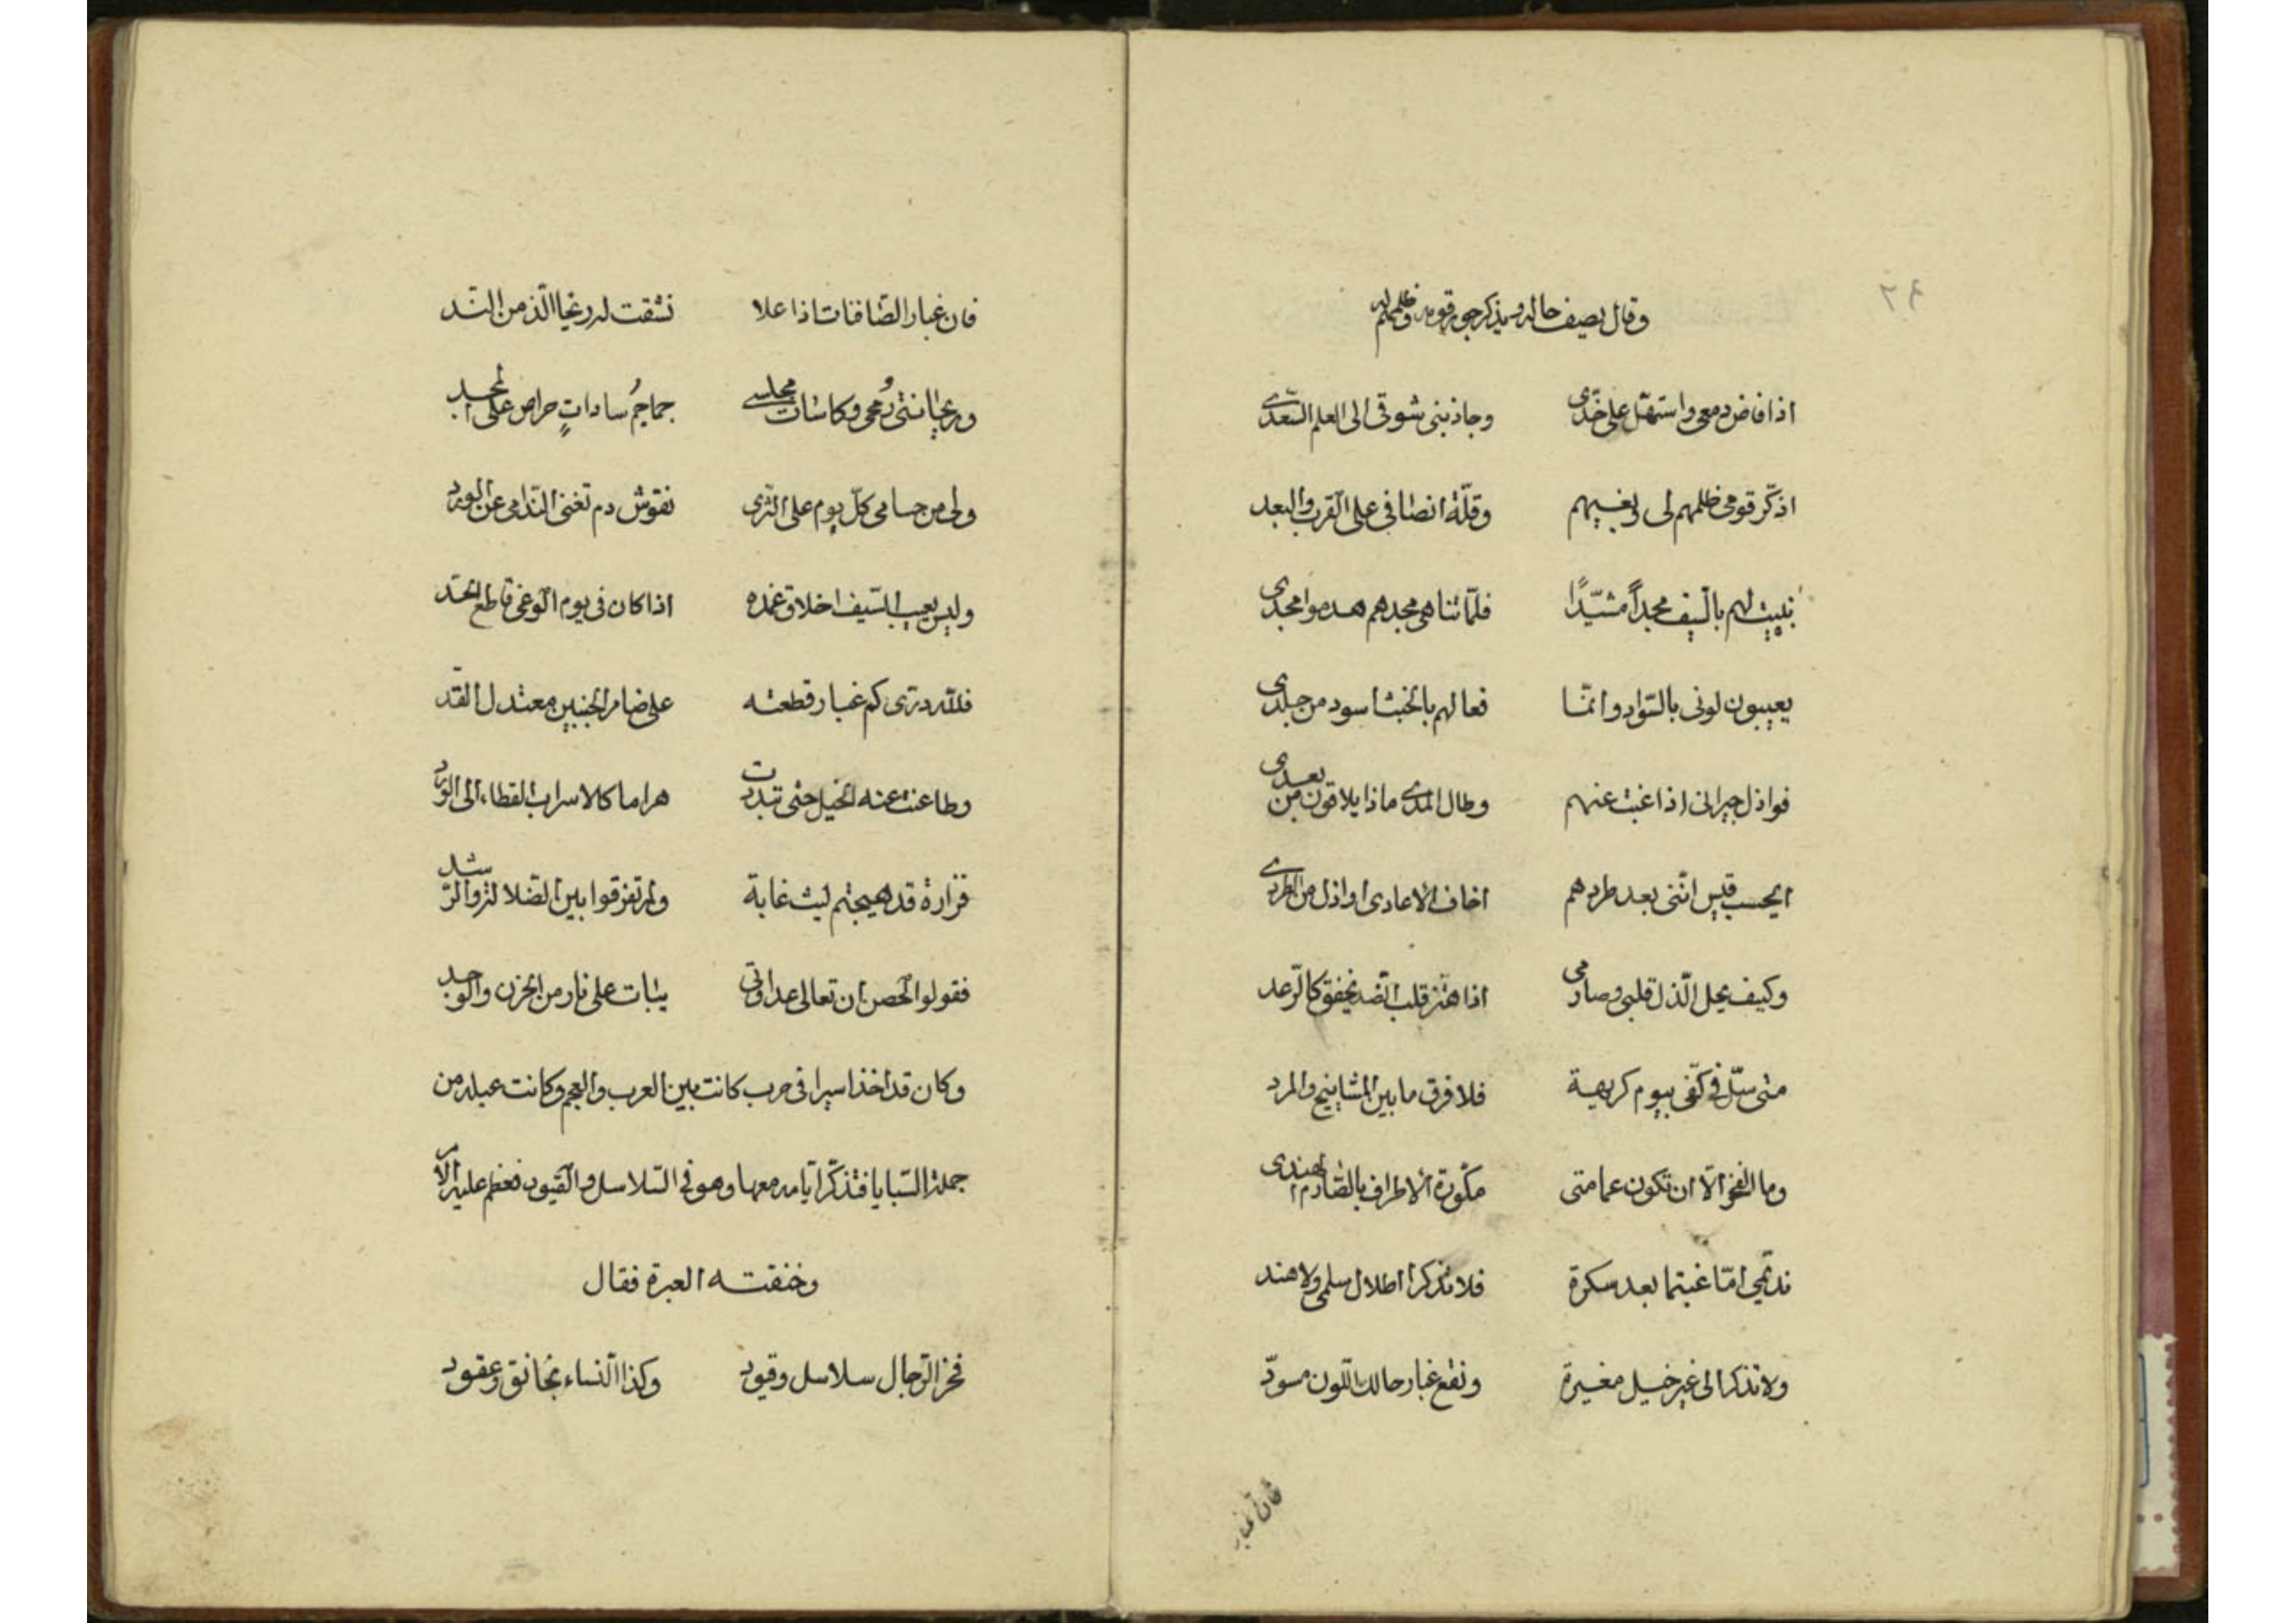 ٢٤
وقال يصف حاله ويذكر جور قومه وظلمهم له
اذا فاض دمعى واستهلّ على خدّى وجاذبنى شوقى الى العلم السّعدى
اذكّر قومى ظلمهم لى وبغيهم وقلّة انصافى على القرب والبعد
بنيت لهم بالسّيف مجداً مشيّدًا فلمّا تناهى مجدهم هدموا مجدى
يعيبون لونى بالسّواد وانّما فعالهم بالخبث اسود من جلدى
فواذل جيرانى اذا غبت عنهم وطال المدى ماذا يلاقون من بعدى
ايحسب قيس انّنى بعد طردهم اخاف الاعادى او اذل من الطرد
وكيف يحل الذّل قلبى وصارمى اذا هتز قلب الضد يخفق كالرّعد
متى سلّ فى كفّى بيوم كريهة فلا فرق ما بين المشاينخ والمرد
وما الفخر الّا ان تكون عمامتى مكّورة الاطراف بالصّارم الهندى
نديمي امّا غبتما بعد سكرة فلا تذكرا اطلال سلمى ولا هند
ولا تذكرا لى غير خيل مغيرة ونقع غبار حالك اللّون مسودّ
فان غبار
فان غبار الصّافنات اذا علا نشقت له ريحا الّذ من النّد
وريحانتى رُمحى وكاسات مجلسى جماجمُ ساداتٍ حراص على المجد
ولى من حسامى كلّ يوم على الثّرى نقوش دم تغنى النّدامى عن الورد
وليس يعيب السّيف اخلاق غمده اذا كان فى يوم الوغى قاطع الحدّ
فللّه درّى كم غبار قطعته على ضامر الجنبين معتدل القدّ
وطاعنت عنه الخيل حتى تبددت هراما كالاسراب القطاء الى الورد
فزارة قد هيجتم ليث غابة ولم تفرقوا بين الضلالة والرّشد
فقولوا لحصن ان تعالى عداوتى يبات على نار من الحزن والوجد
وكان قد اخذ اسيرا فى حرب كانت بين العرب والعجم وكانت عبله من
جملة السّبايا فتذكّر ايّامه معها وهو فى السّلاسل والقيود فعظم عليه الامر
وخنقته العبرة فقال
فخر الرّجال سلاسل وقيود وكذا النّساء بخانق وعقود